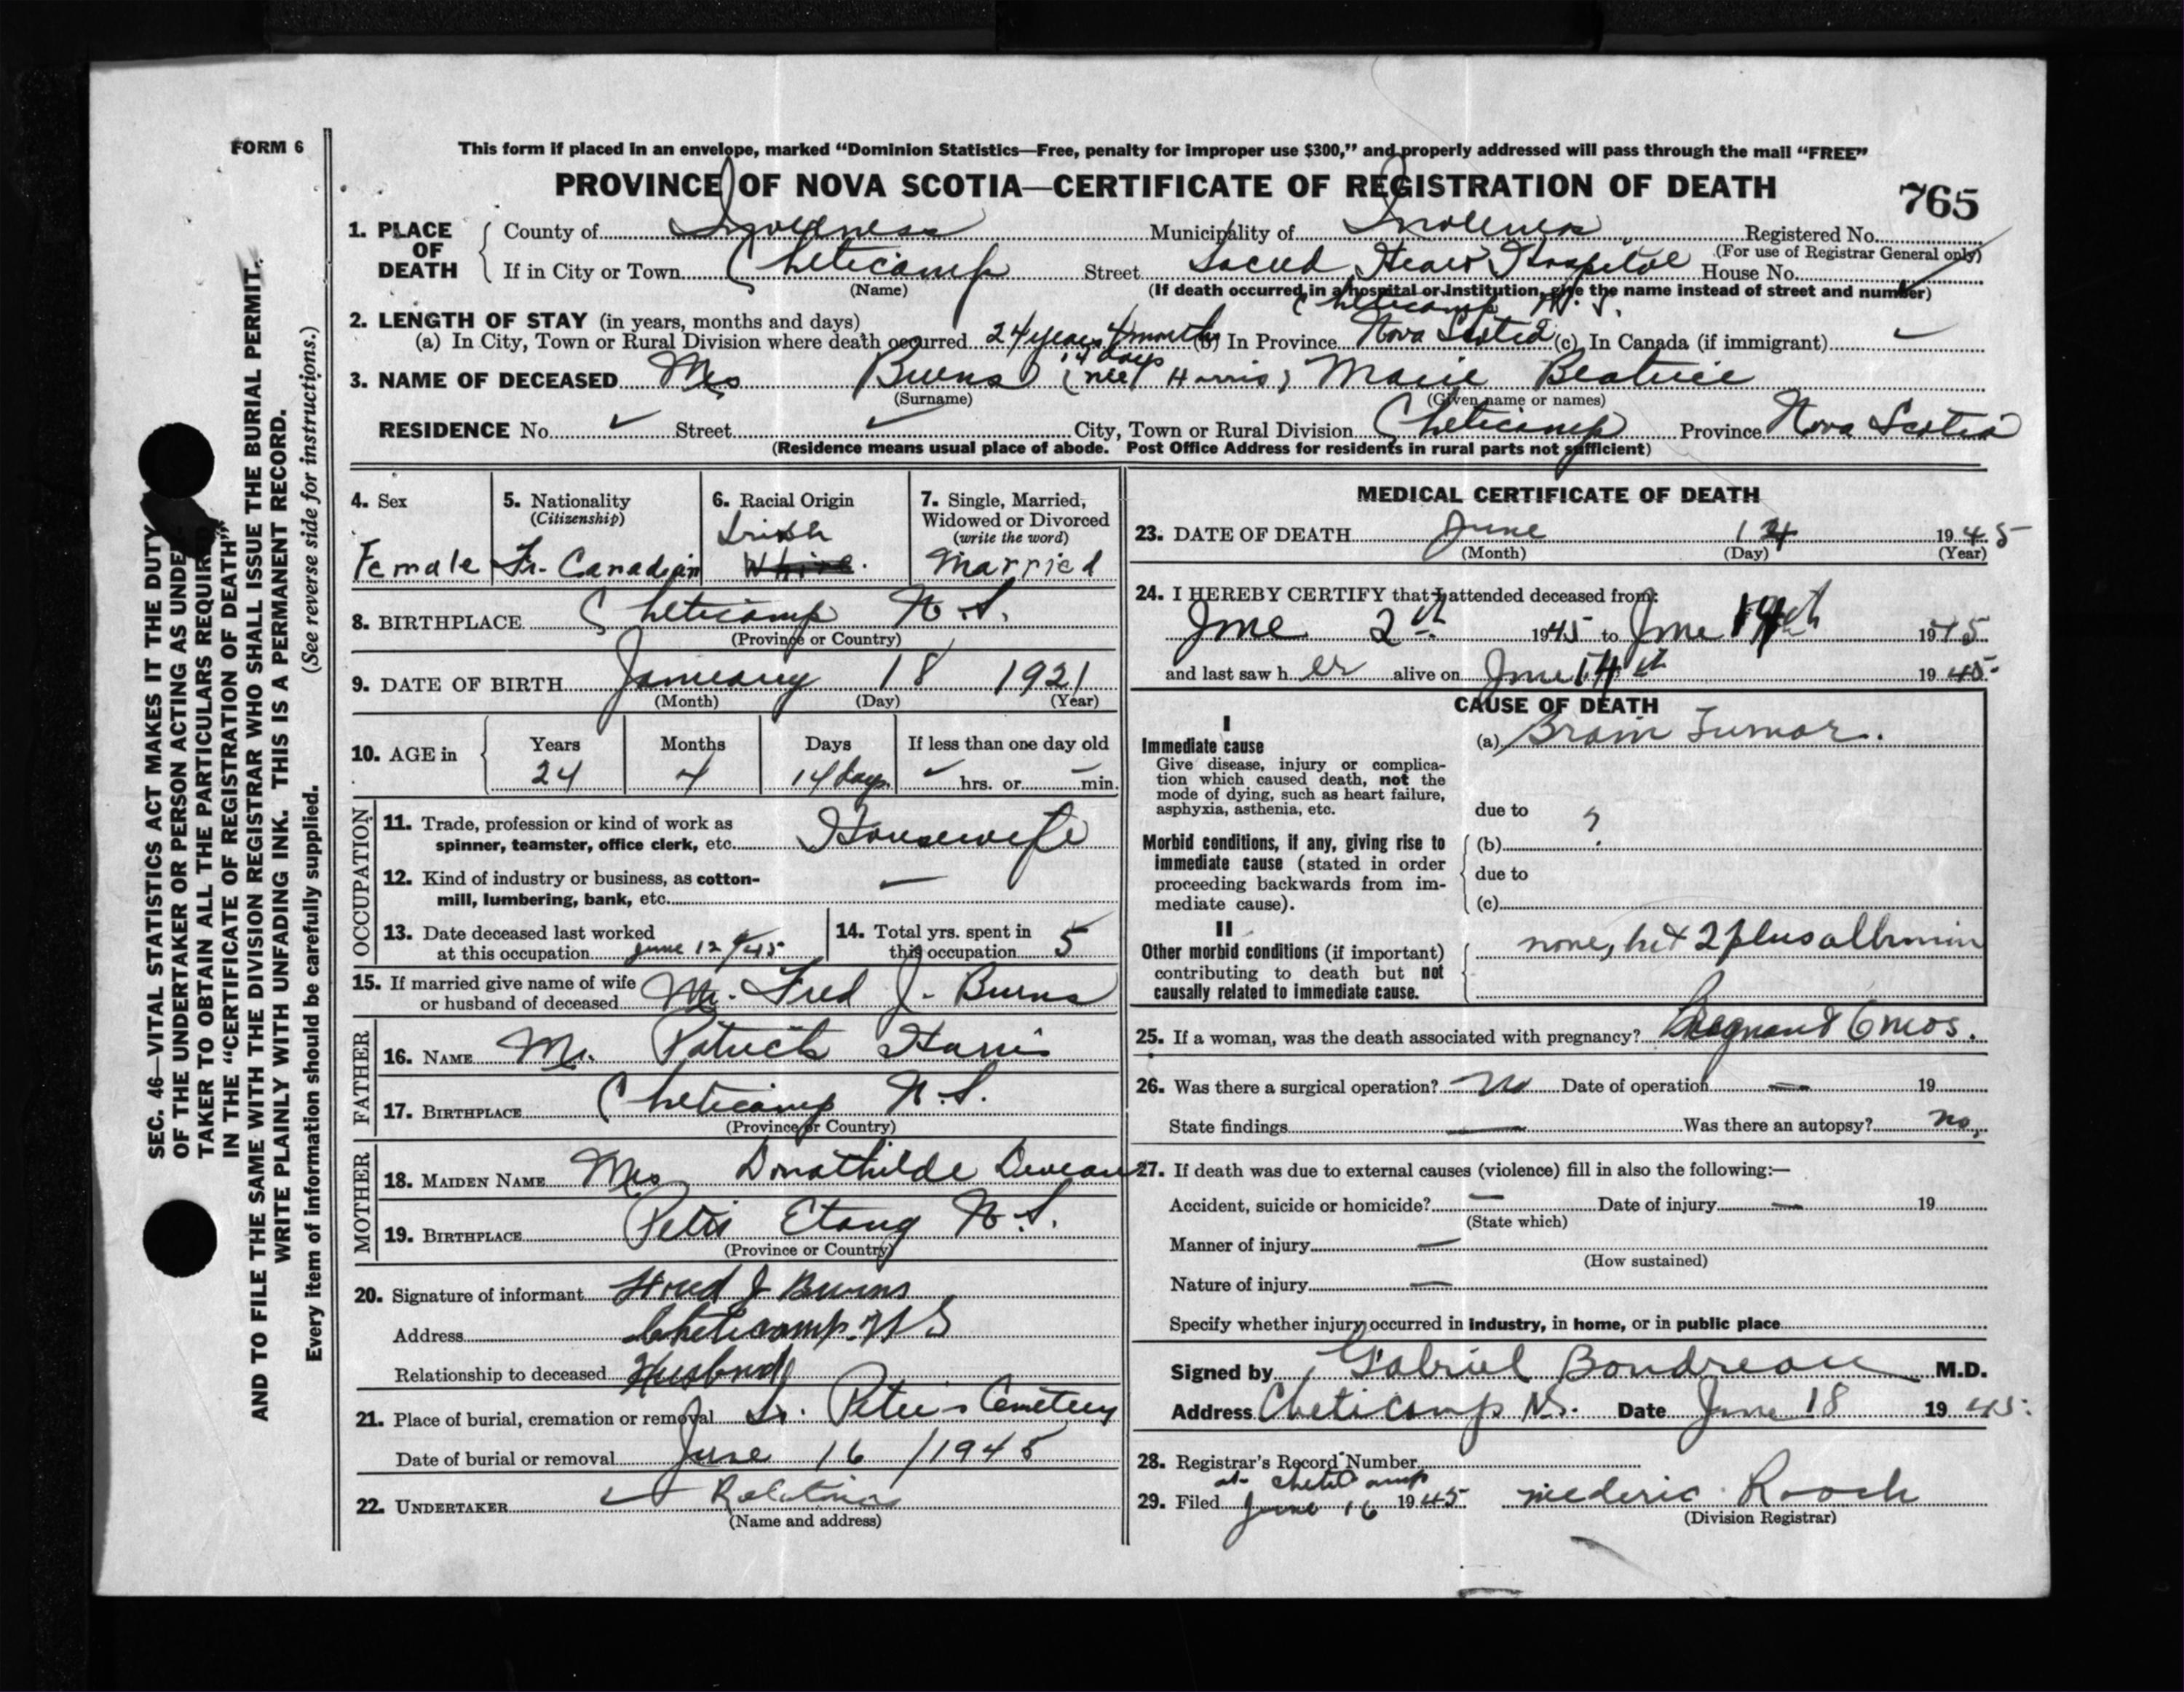 FORM 6
This form if placed in an envelope, marked “Dominion Statistics—Free, penalty for improper use $300,” and properly addressed will pass through the mail “FREE”
PROVINCE OF NOVA SCOTIA—CERTIFICATE OF REGISTRATION OF DEATH
765
1. PLACE OF DEATH County of Inverness Municipality of Inverness Registered No.
(For use of Registrar General only)
If in City or Town Cheticamp Street Sacred Heart Hospital House No.
(Name) (If death occurred in a hospital or Institution, give the name instead of street and number)
Cheticamp N. S.
2. LENGTH OF STAY (in years, months and days)
(a) In City, Town or Rural Division where death occurred 24 years 4 months (b) In Province Nova Scotia (c) In Canada (if immigrant)
14 days
3. NAME OF DECEASED Mrs Burns (nee Harris) Marie Beatrice
(Surname) (Given name or names)
RESIDENCE No. Street City, Town or Rural Division Cheticamp Province Nova Scotia
(Residence means usual place of abode. Post Office Address for residents in rural parts not sufficient)
SEC. 46—VITAL STATISTICS ACT MAKES IT THE DUTY
OF THE UNDERTAKER OR PERSON ACTING AS UNDER
TAKER TO OBTAIN ALL THE PARTICULARS REQUIRED
IN THE “CERTIFICATE OF REGISTRATION OF DEATH”
AND TO FILE THE SAME WITH THE DIVISION REGISTRAR WHO SHALL ISSUE THE BURIAL PERMIT.
WRITE PLAINLY WITH UNFADING INK. THIS IS A PERMANENT RECORD.
Every item of information should be carefully supplied. (See reverse side for instructions.)
4. Sex
Female
5. Nationality
(Citizenship)
Fr. Canadian
6. Racial Origin
Irish
White.
7. Single, Married,
Widowed or Divorced
(write the word)
Married
8. BIRTHPLACE Cheticamp N. S.
(Province or Country)
9. DATE OF BIRTH January 18 1921
(Month) (Day) (Year)
10. AGE in Years Months Days If less than one day old
24 4 14 days hrs. or min.
OCCUPATION
11. Trade, profession or kind of work as
spinner, teamster, office clerk, etc. Housewife
12. Kind of industry or business, as cotton-
mill, lumbering, bank, etc.
13. Date deceased last worked
at this occupation June 12/45
14. Total yrs. spent in
this occupation 5
15. If married give name of wife
or husband of deceased Mr. Fred J. Burns
FATHER
16. NAME Mr. Patrick Harris
17. BIRTHPLACE Cheticamp N. S.
(Province or Country)
MOTHER
18. MAIDEN NAME Mrs Donathilde Deveau
19. BIRTHPLACE Petit Etang N. S.
(Province or Country)
20. Signature of informant Fred J Burns
Address Cheticamp. N S
Relationship to deceased Husband
21. Place of burial, cremation or removal St. Peter's Cemetery
Date of burial or removal June 16 /1945
22. UNDERTAKER Relatives
(Name and address)
MEDICAL CERTIFICATE OF DEATH
23. DATE OF DEATH June 14 1945
(Month) (Day) (Year)
24. I HEREBY CERTIFY that I attended deceased from:
June 2th 1945 to June 14th 1945
and last saw her alive on June 14th 1945
CAUSE OF DEATH
I
Immediate cause
Give disease, injury or complica-
tion which caused death, not the
mode of dying, such as heart failure,
asphyxia, asthenia, etc.
(a) Brain Tumor.
due to
Morbid conditions, if any, giving rise to
immediate cause (stated in order
proceeding backwards from im-
mediate cause).
(b) ?
due to
(c)
II
Other morbid conditions (if important)
contributing to death but not
causally related to immediate cause.
none, but 2 plus albumin
25. If a woman, was the death associated with pregnancy? Pregnant 6 mos.
26. Was there a surgical operation? No Date of operation — 19
State findings — Was there an autopsy? no.
27. If death was due to external causes (violence) fill in also the following:—
Accident, suicide or homicide? — Date of injury — 19
(State which)
Manner of injury —
(How sustained)
Nature of injury —
Specify whether injury occurred in industry, in home, or in public place
Signed by Gabriel Boudreau M.D.
Address Cheticamp N.S. Date June 18 1945.
28. Registrar's Record Number
at Cheticamp
29. Filed June 16 1945 Mederic Roach
(Division Registrar)